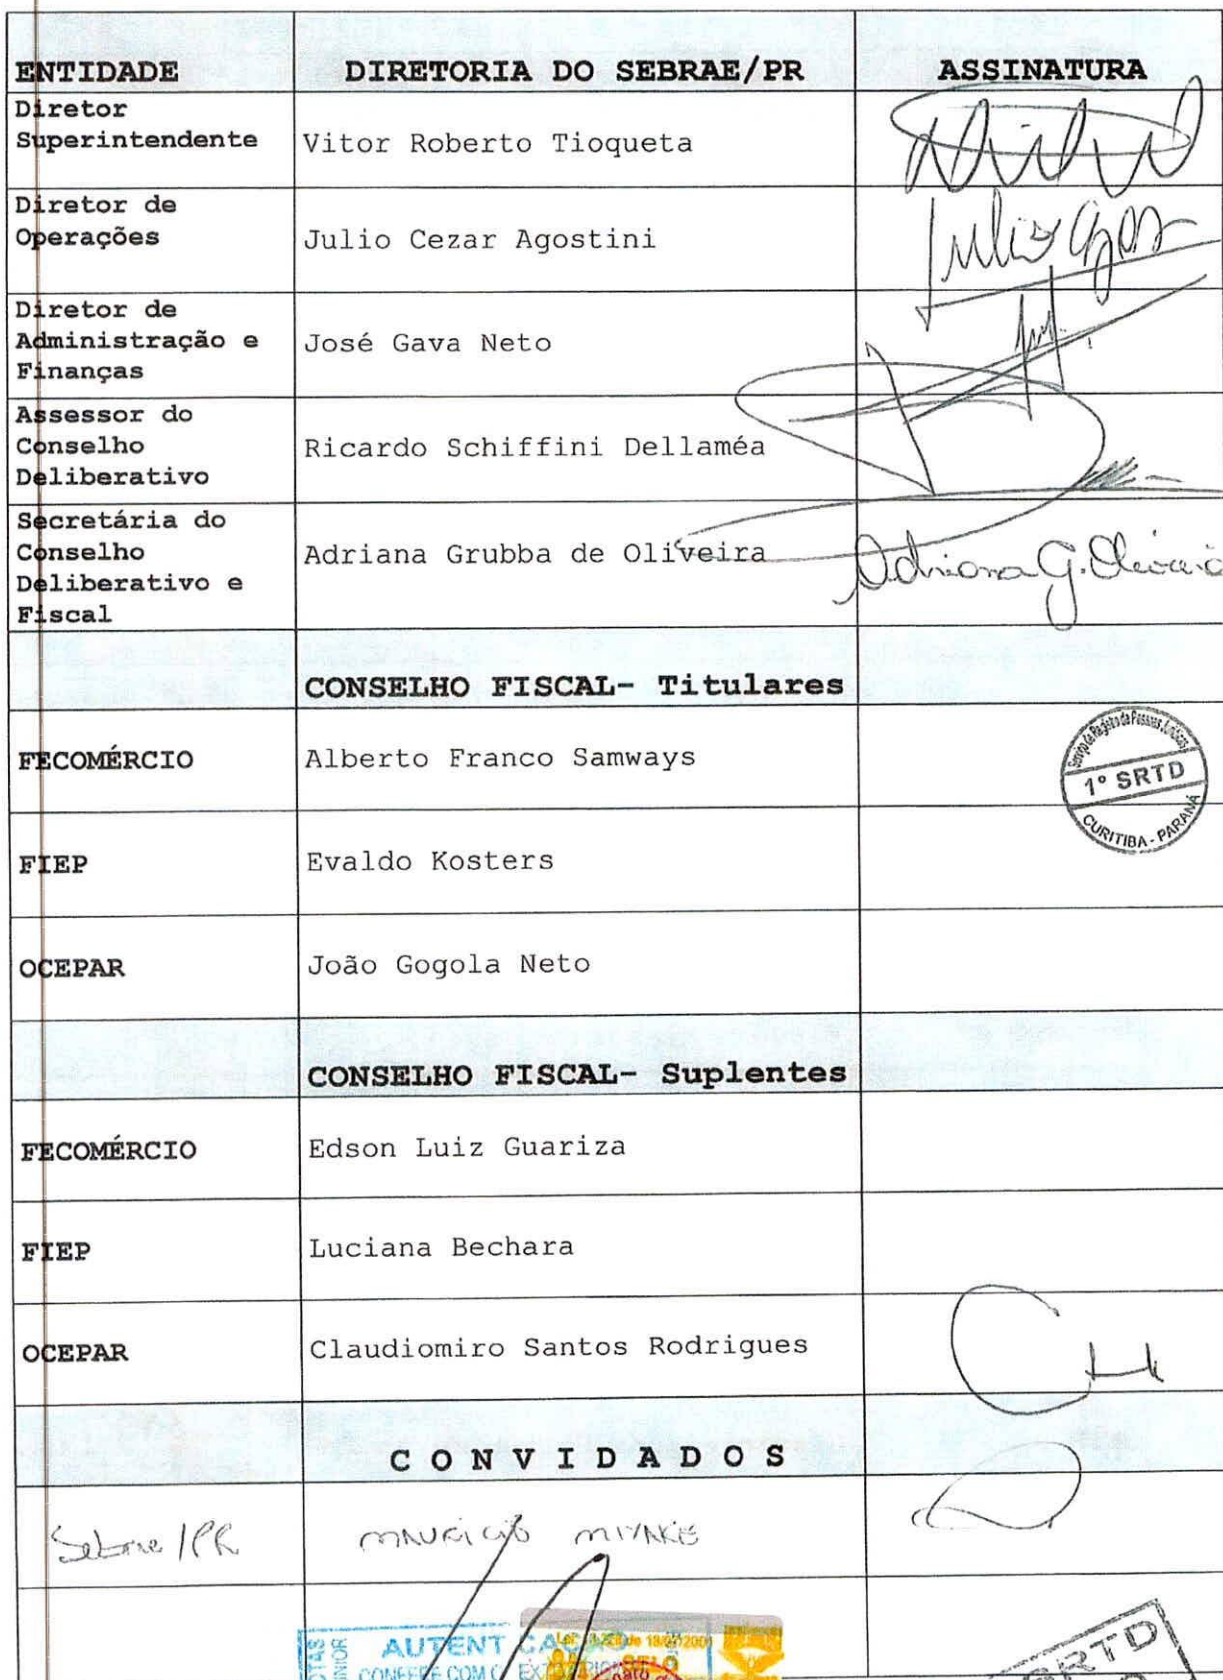 ENTIDADE DIRETORIA DO SEBRAE/PR ASSINATURA
Diretor
Superintendente Vitor Roberto Tioqueta
Diretor de
Operações Julio Cezar Agostini
Diretor de
Administração e
Finanças José Gava Neto
Assessor do
Conselho
Deliberativo Ricardo Schiffini Dellaméa
Secretária do
Conselho
Deliberativo e
Fiscal Adriana Grubba de Oliveira Adriana G. Oliveira
CONSELHO FISCAL- Titulares
FECOMÉRCIO Alberto Franco Samways
Serviço de Registro de Pessoas Jurídicas
1º SRTD
CURITIBA - PARANÁ
FIEP Evaldo Kosters
OCEPAR João Gogola Neto
CONSELHO FISCAL- Suplentes
FECOMÉRCIO Edson Luiz Guariza
FIEP Luciana Bechara
OCEPAR Claudiomiro Santos Rodrigues
C O N V I D A D O S
Sebrae/PR MAURICIO MIYAKE